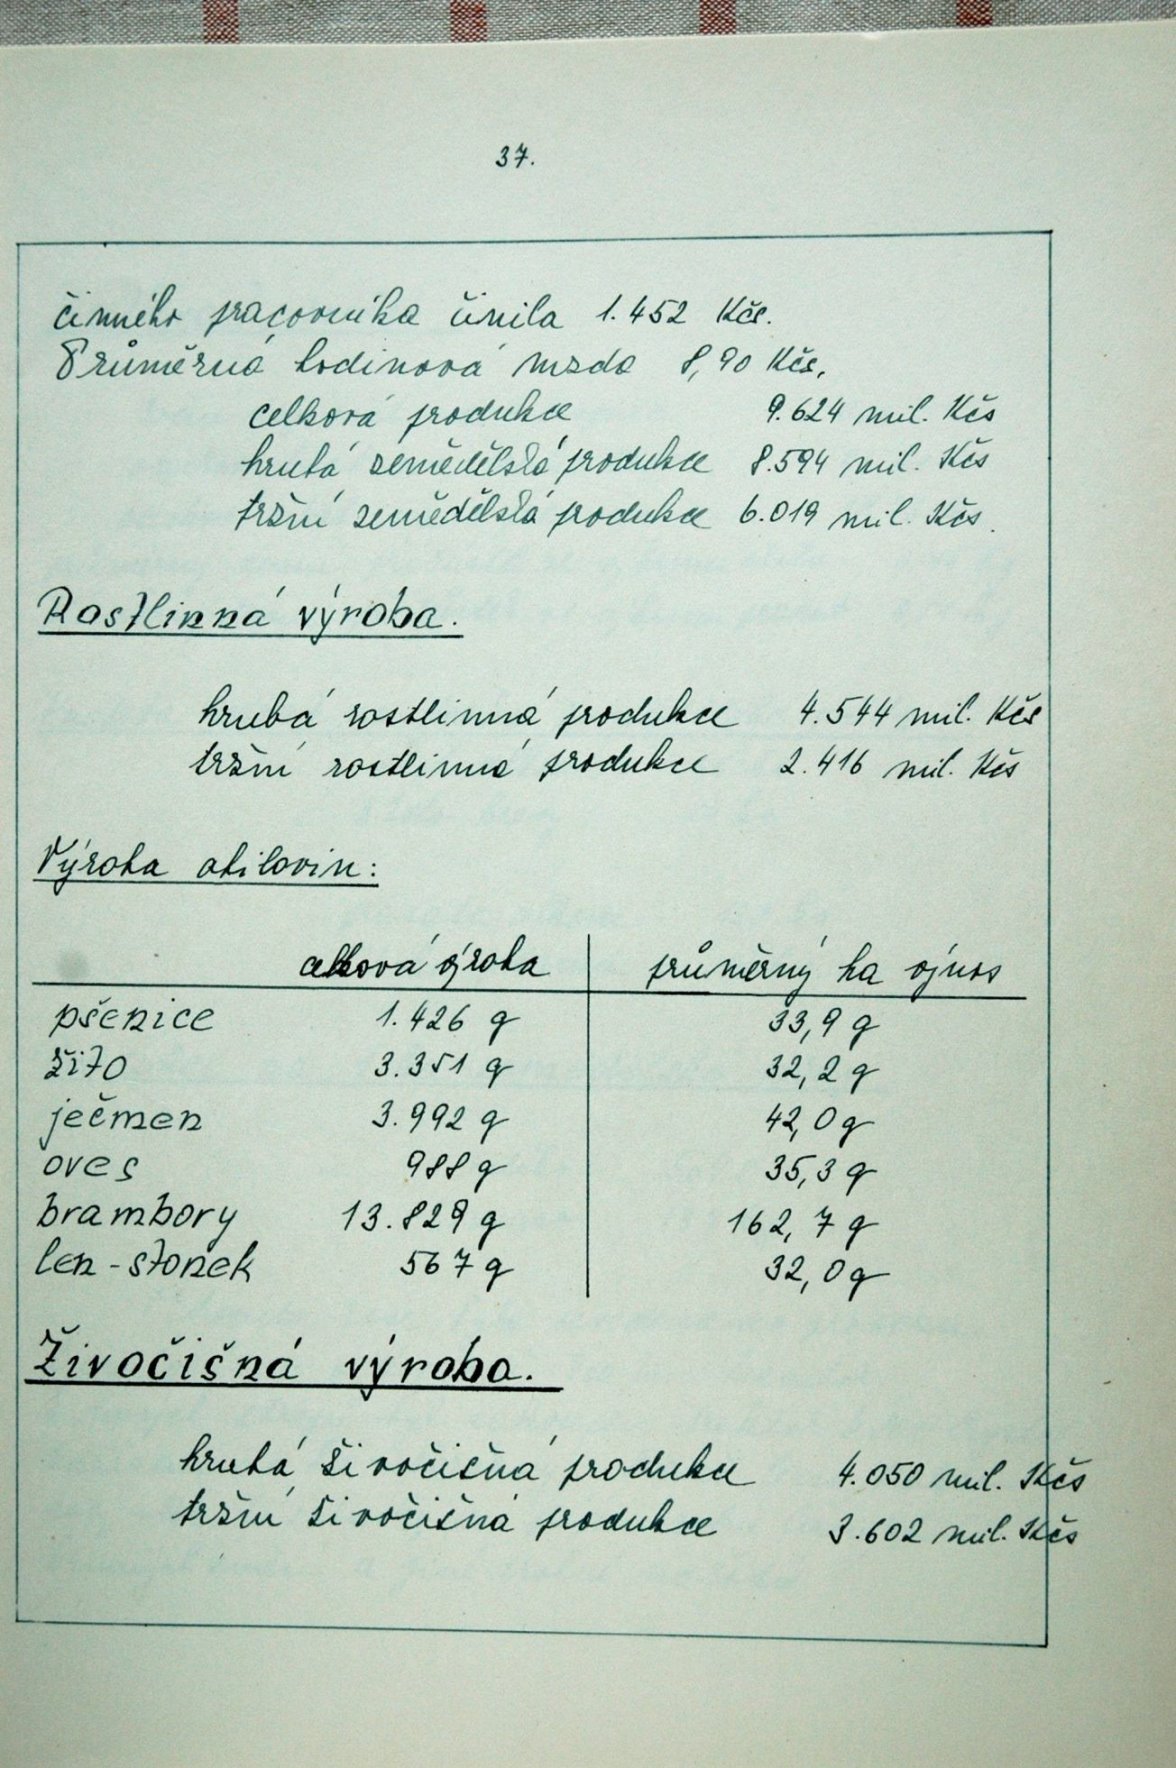 37.
činného pracovníka činila 1.452 Kčs.
Průměrná hodinová mzda 8,90 Kčs,
celková produkce 9.624 mil. Kčs
hrubá zemědělská produkce 8.594 mil. Kčs
tržní zemědělská produkce 6.019 mil. Kčs.
Rostlinná výroba.
hrubá rostlinná produkce 4.544 mil. Kčs
tržní rostlinná produkce 2.416 mil. Kčs
Výroba obilovin:
celková výroba průměrný ha výnos
pšenice 1.426 q 33,9 q
žito 3.351 q 32,2 q
ječmen 3.992 q 42,0 q
oves 988 q 35,3 q
brambory 13.829 q 162,7 q
len-stonek 567 q 32,0 q
Živočišná výroba.
hrubá živočišná produkce 4.050 mil. Kčs
tržní živočišná produkce 3.602 mil. Kčs